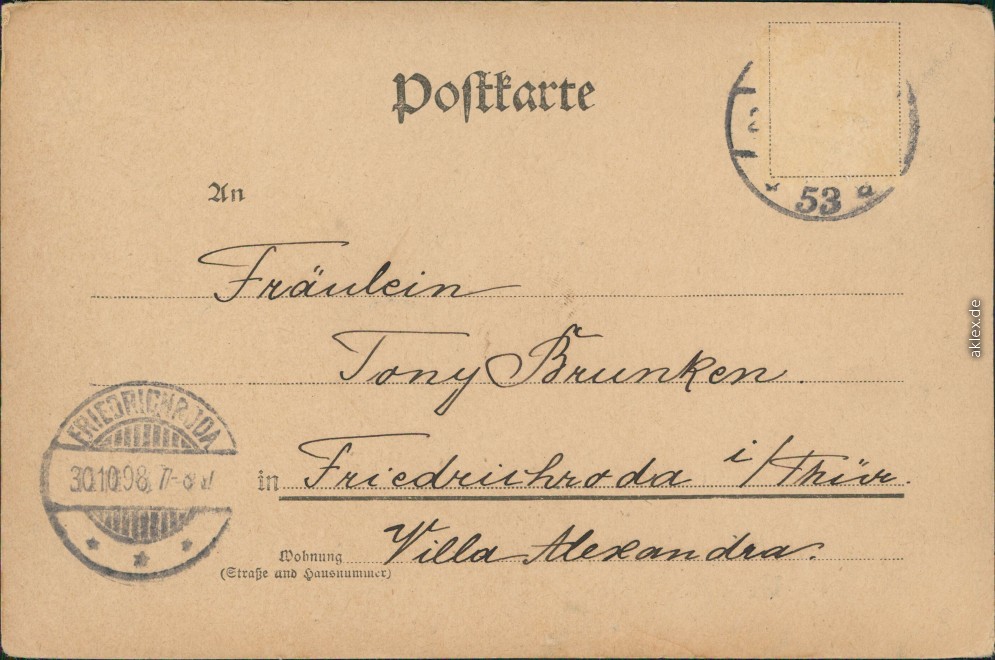 Postkarte
53
An
Fräulein
Tony Brunken.
FRIEDRICHRODA
30.10.98. 7-8
in Friedrichroda i/Thür.
Wohnung
(Straße und Hausnummer)
Villa Alexandra.
aklex.de